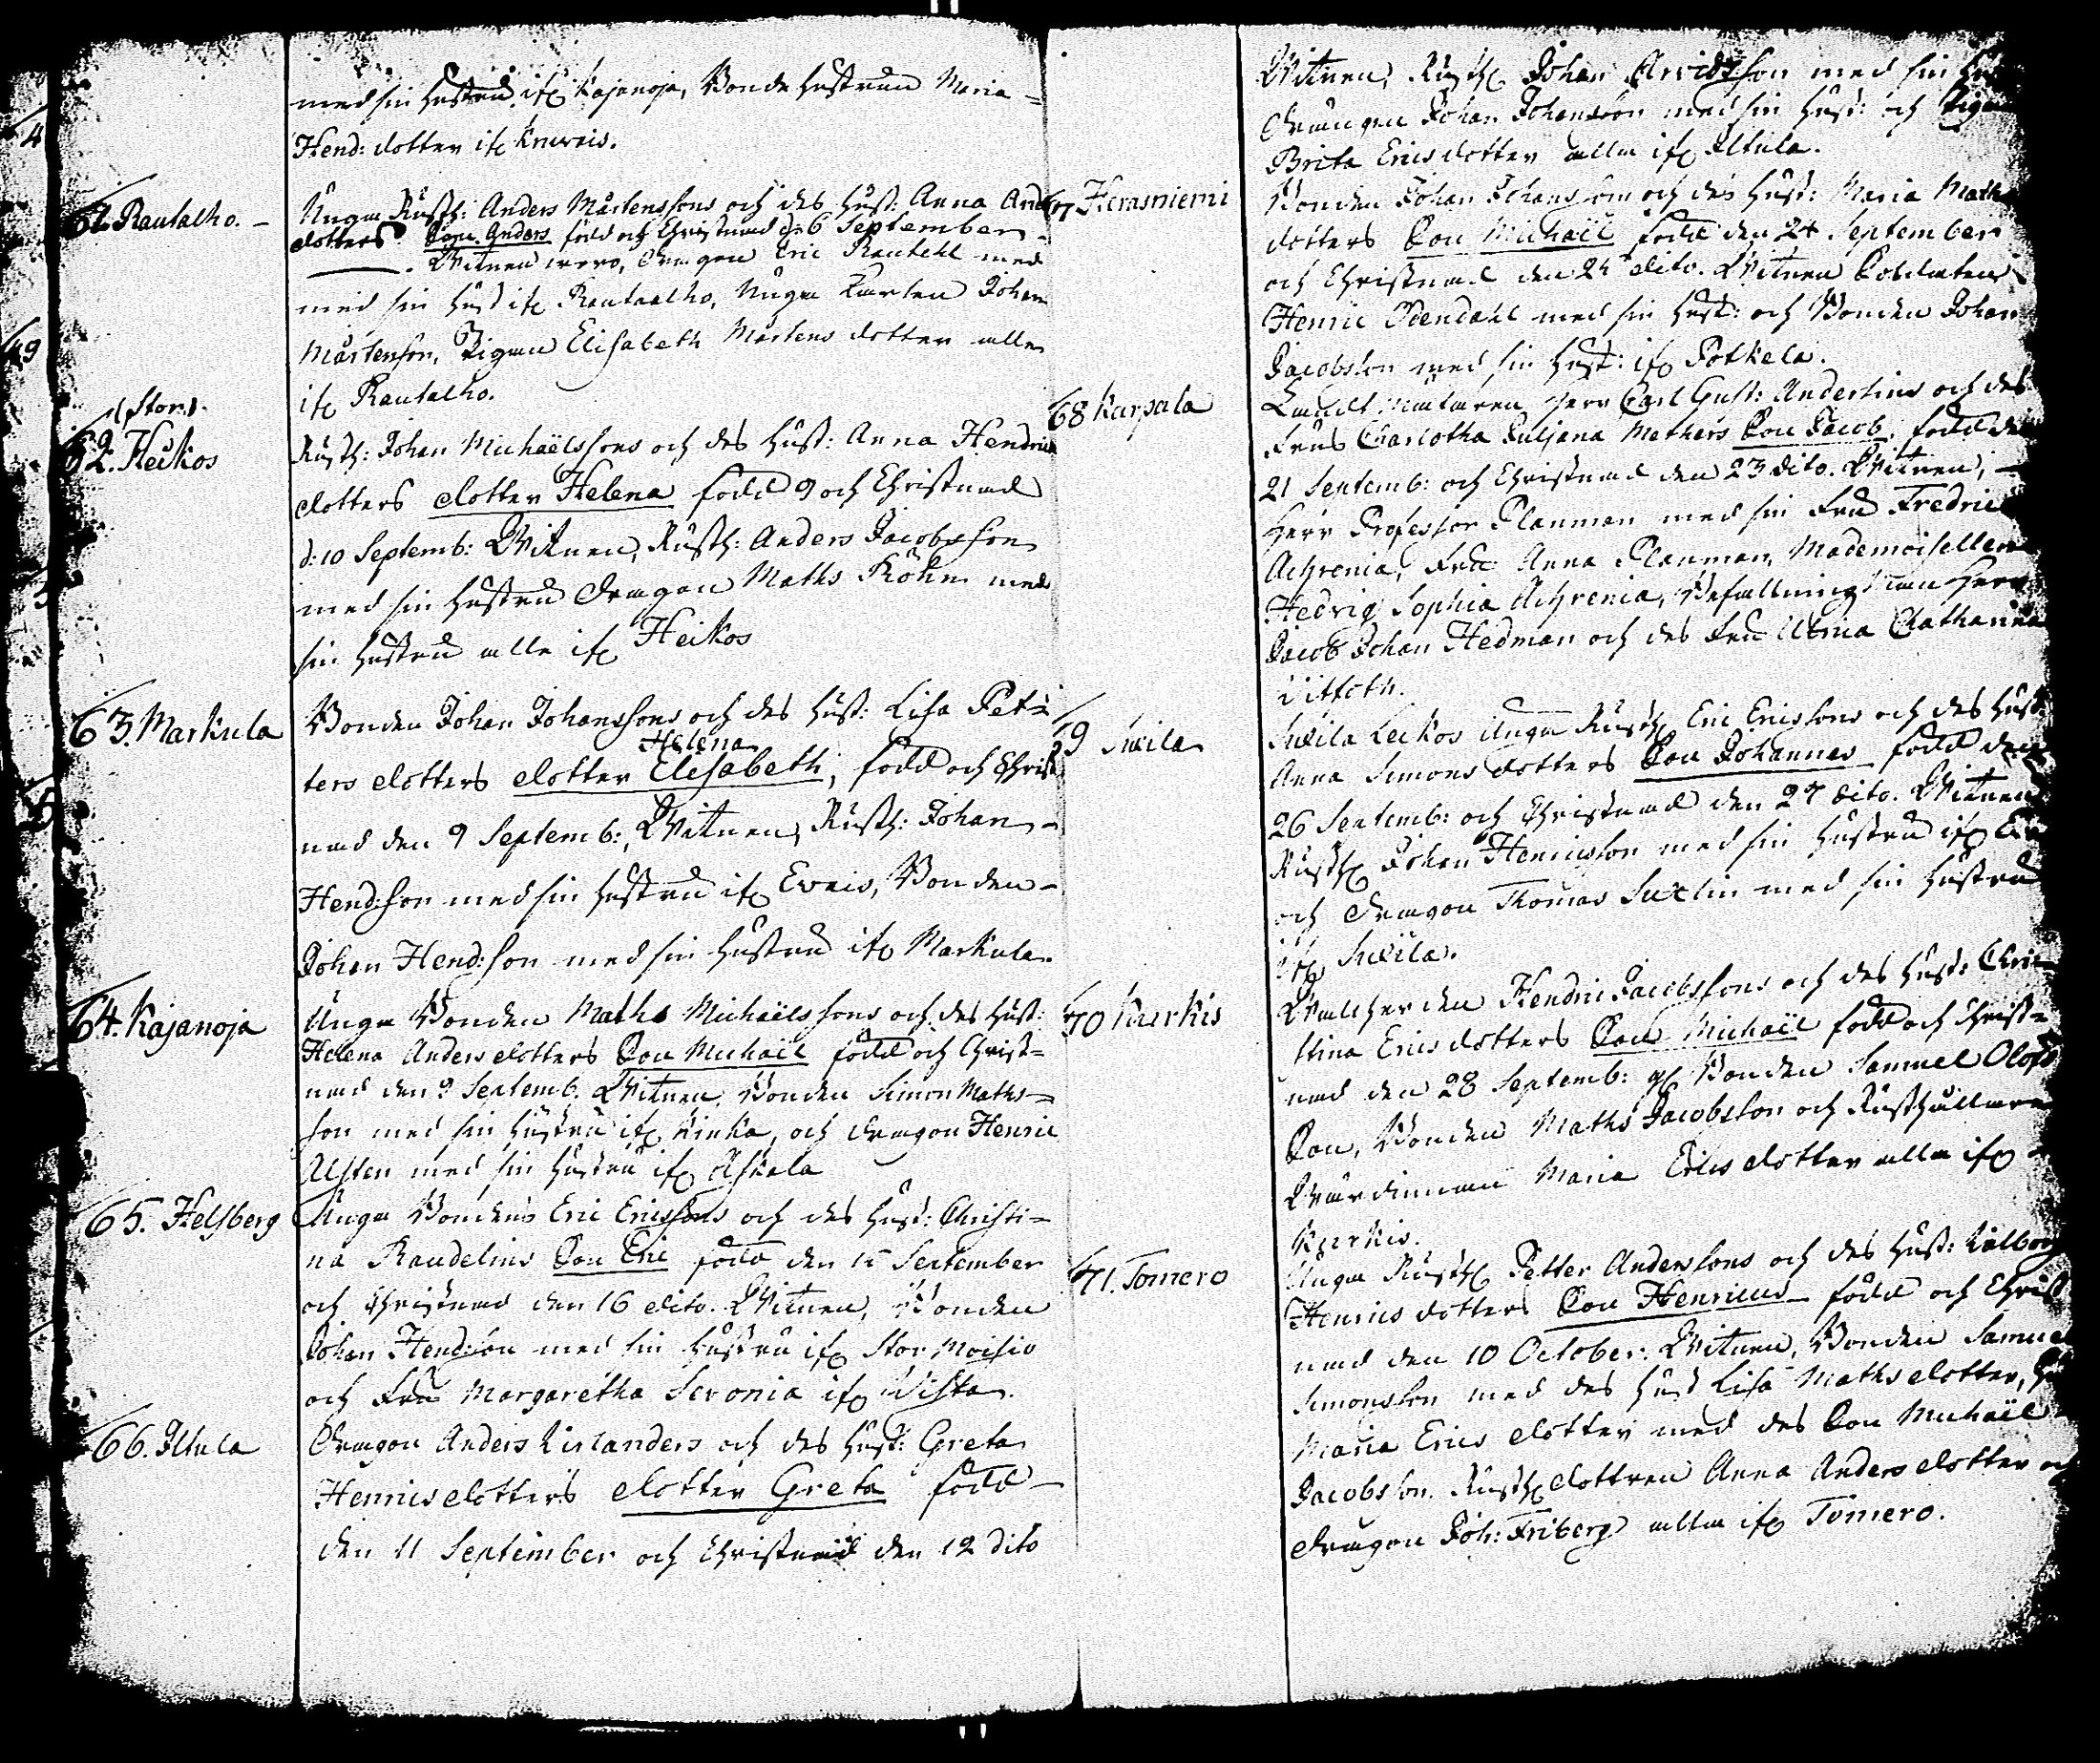 med sin hustru ifr. Kajanoja, Bonde hustrun Maria
Hend: dotter ifr.
61. Rautalho.
Unga Rusth: Anders Mårtenssons och des Hust: Anna And
dotters Son Anders född och Christnad d: 6 September
Vitnen woro, Dragon Eric Rautell med
med sin Hust ifr. Rautalho, Unga Karlen Johan
Mårtenson, Pigan Elisabeth Mårtens dotter alla
ifr. Rautalho.
(Stor).
62. Heikos
Rusth: Johan Michaëlssons och des Hust: Anna Hendrics
dotters dotter Helena född 9 och Christnad
d: 10 Septemb: Vitnen, Rusth: Anders Jacobsson
med sin hustru Dragon Maths Röhn med
sin hustru alla ifr. Heikos
63. Markula
Bonden Johan Johanssons och des Hust: Lisa Pet=
Helena
ters dotters dotter Elisabeth, född och Christ
nad den 9 Septemb: Vitnen, Rusth: Johan
Hend:son med sin hustru ifr. Eveis, Bonden
Johan Hend:son med sin hustru ifr. Markula.
64. Kajanoja
Unga Bonden Maths Michaëlssons och des Hust:
Helena Anders dotters Son Michaël född och Christ=
nad den 9 Septemb. Vitnen, Bonden Simon Maths=
son med sin hustru ifr. och Dragon Henric
Alsten med sin hustru ifr.
65. Helsberg
Unga Bondens Eric Ericssons och des Hust: Christi=
na Randelins Son Eric född den 15 September
och Christnad den 16 dito. Vitnen, Bonden
Johan Hend:son med sin hustru ifr. Stor Moisio
och Fru Margaretha Seronia ifr. Wista.
66. Iltula
Dragon Anders Kirlanders och des Hust: Greta
Henrics dotters dotter Greta född
den 11 September och Christnad den 12 dito
Vitnen, Rusth: Johan Arvidsson med sin Hu
Drängen Johan Johansson med sin Hust: och Pigan
Brita Erics dotter alla ifr. Iltula.
67 Herasniemi
Bonden Johan Johanssons och des Hust: Maria Maths
dotters Son Michaël född den 24 September
och Christnad den 25 dito. Vitnen Soldaten
Henric Odendahl med sin Hust: och Bonden Johan
Jacobsson med sin Hust: ifr. Potkela.
68 Karpala
Landtmätaren Herr Carl Gust: Anderlins och des
Frus Charlotha Juljana Mathers Son Jacob, född de
21 Septemb: och Christnad den 23 dito. Vitnen,
Herr Professor Planman med sin Fru Fredrica
Achrenia, Fru Anna Planman, Mademoisellen
Hedvig Sophia Achrenia, Befallningsman Herr
Jacob Johan Hedman och des Fru Ulrica Catharina
Vitfoth.
69 Suxila
Suxila Leikos Unga Rusth. Eric Ericssons och des Hust:
Anna Simons dotters Son Johannes född den
26 Septemb: och Christnad den 27 dito. Vitnen
Rusth. Johan Henricsson med sin hustru ifr.
och Dragon Thomas Suxlin med sin hustru
ifr. Suxila.
70 Kurkis
Hendric Jacobssons och des Hust: Chris
tina Erics dotters Son Michaël född och Christ=
nad den 28 Septemb: Bonden Samuel Olofs
Son, Bonden Maths Jacobsson och Rusthållare
Wärdinnan Maria Erics dotter alla ifr.
Kurkis.
71. Tomero
Unga Rusth. Petter Anderssons och des Hust: Valborg
Henrics dotters Son Henricus född och Christ
nad den 10 October: Vitnen, Bonden Samuel
Simonsson med des Hust Lisa Maths dotter,
Maria Erics dotter med des Son Michaël
Jacobsson. Rusth. dottren Anna Anders dotter och
Dragon Joh: Friberg alla ifr. Tomero.